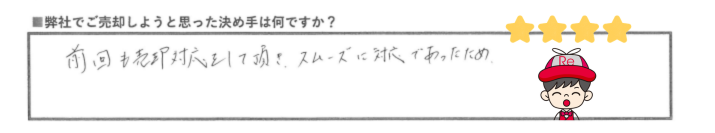 ■弊社でご売却しようと思った決め手は何ですか？
前回も売却対応をして頂き、スムーズに対応であったため。
Re